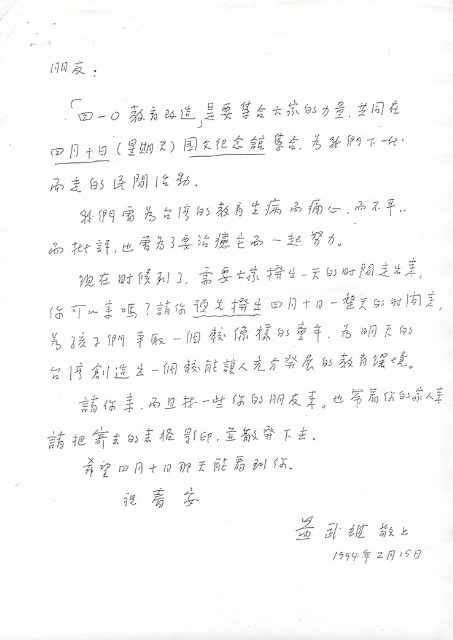 朋友：
「四一〇教育改造」是要集合大家的力量，共同在
四月十日（星期天）國父紀念館集合，為我們下一代
而走的民間活動。
我們曾為台灣的教育生病而痛心，而不平，
而批評，也曾為了要治療它而一起努力。
現在时候到了，需要大家撥出一天的时間走出來，
你可以來嗎？請你預先撥出四月十日一整天的时間來，
為孩子們爭取一個較像樣的童年，為明天的
台灣創造出一個較能讓人充分發展的教育環境。
請你來，而且找一些你的朋友來。也帶着你的家人來
請把寄去的表格影印，並散發下去。
希望四月十日那天能看到你。
祝春安
黃武雄 敬上
1994年2月15日